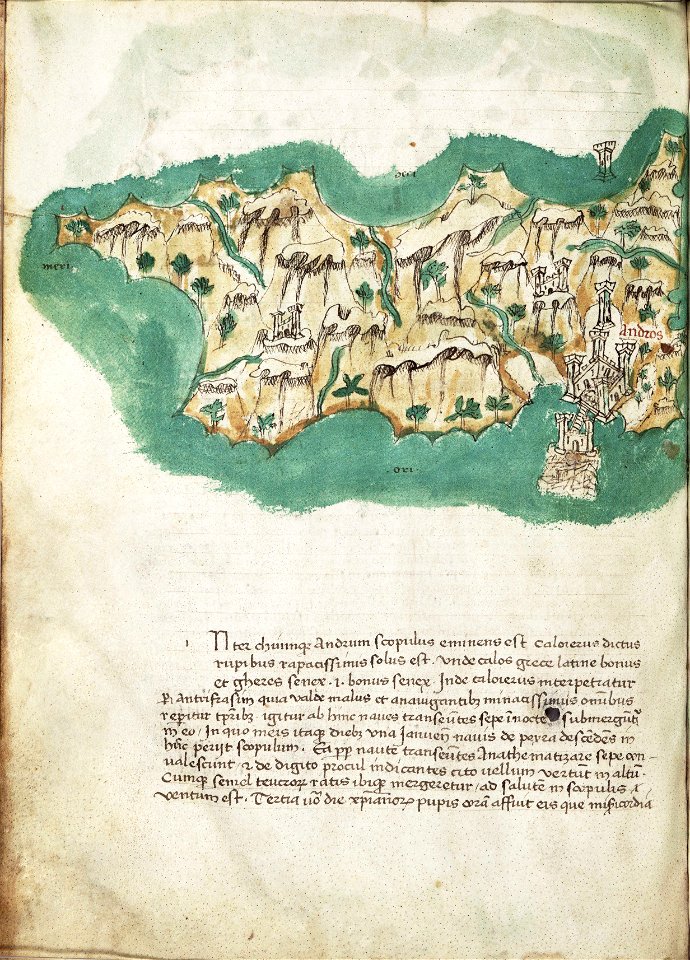 occi
meri
Andros
ori
Nter chiumqꝫ Andrum scopulus eminens est caloierus dictus
rupibus rapacissimis solus est. Vnde calos grece latine bonus
et gheres senex .i. bonus senex. Inde caloierus interpretratur
ꝑ Antifrasim quia valde malus et anauigantibꝫ minacissimus omnibus
reperitur tꝑribꝫ igitur ab hinc naues transeũtes sepe in nocte submergũtur
in eo / In quo meis itaqꝫ diebꝫ vna Januen̄ nauis de peyra descēdēs in
hũc perijt scopulum. naute transeũtes Anathematizare sepe con-
ualescunt / ⁊ de digito procul indicantes cito uellum vertũt in altũ.
Cumqꝫ semel teucroꝝ ratis ibiqꝫ mergeretur / ad salutē in scopulis
ventum est. Tertia uō die xp̄ianoꝝ pupis corā affuit eis que mĩsericordia